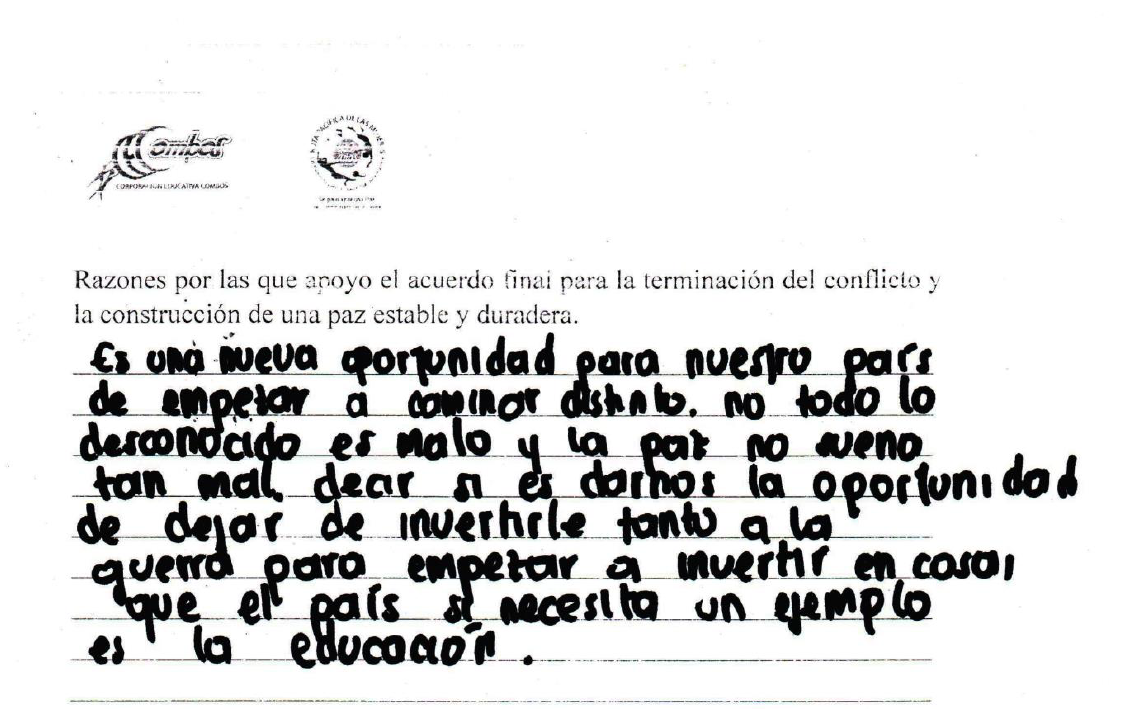 Combos
CORPORACIÓN EDUCATIVA COMBOS
RUTA PACÍFICA DE LAS MUJERES
Razones por las que apoyo el acuerdo final para la terminación del conflicto y
la construcción de una paz estable y duradera.
Es una nueva oportunidad para nuestro país
de empezar a caminar distinto. no todo lo
desconocido es malo y la paz no suena
tan mal, decir si es darnos la oportunidad
de dejar de invertirle tanto a la
guerra para empezar a invertir en cosas
que el país si necesita un ejemplo
es la educación.